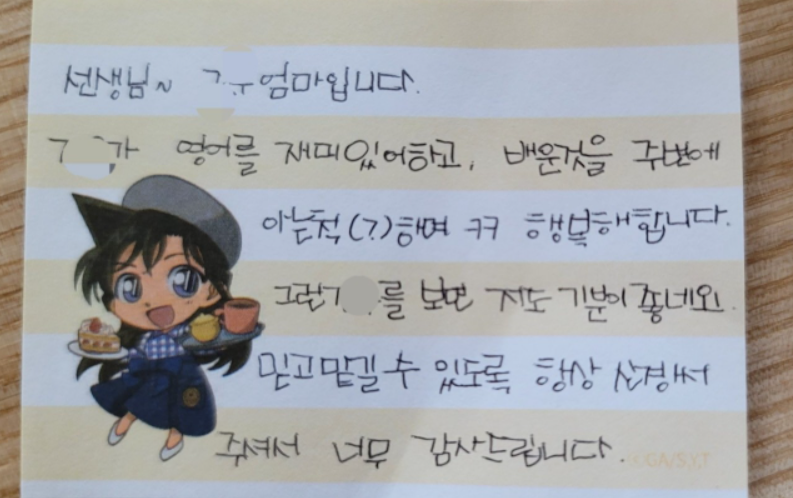 선생님~ 엄마입니다.
가 영어를 재미있어하고, 배운것을 주변에
아는척(?)하며 ㅋㅋ 행복해합니다.
그런 를 보면 저도 기분이 좋네요.
믿고 맡길 수 있도록 항상 신경써
주셔서 너무 감사드립니다.